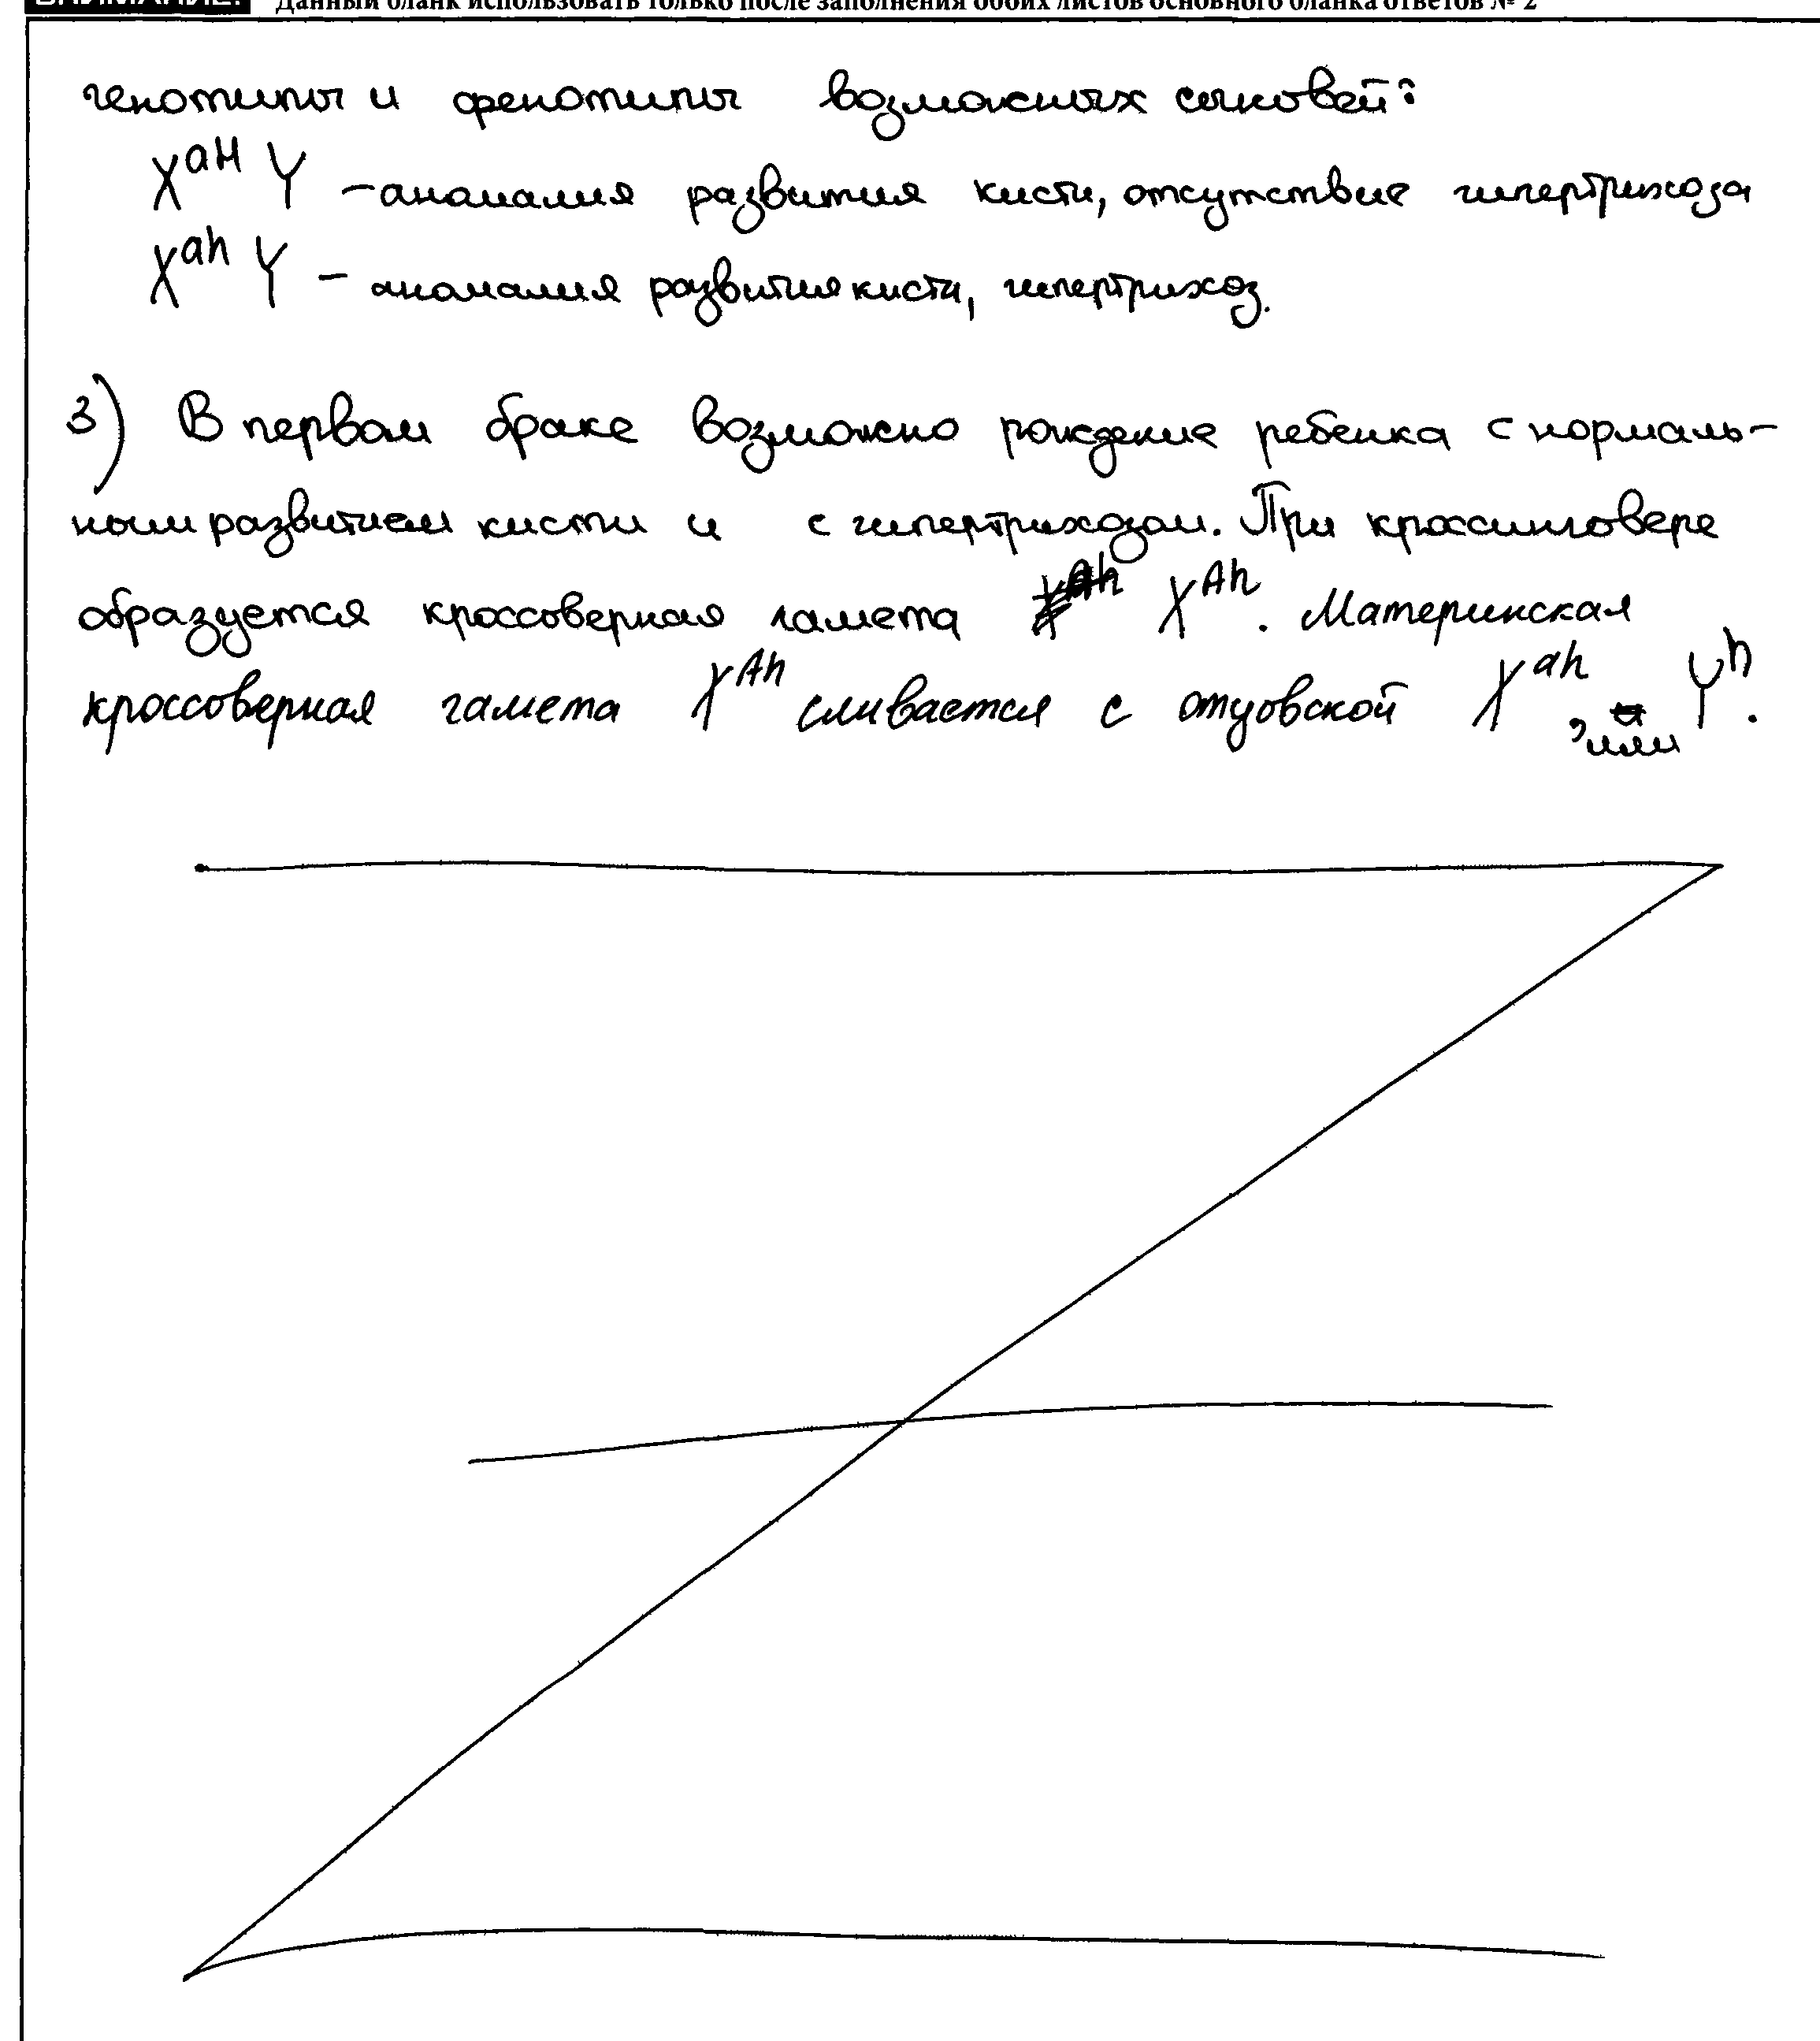 ВНИМАНИЕ! Данный бланк использовать только после заполнения обоих листов основного бланка ответов № 2
генотипы и фенотипы возможных сыновей:
X^aH Y – аномалия развития кисти, отсутствие гипертрихоза
X^ah Y – аномалия развития кисти, гипертрихоз.
3) В первом браке возможно рождение ребенка с нормаль-
ным развитием кисти и с гипертрихозом. При кроссинговере
образуется кроссоверная гамета X^Ah. Материнская
кроссоверная гамета X^Ah сливается с отцовской X^ah, или Y^h.